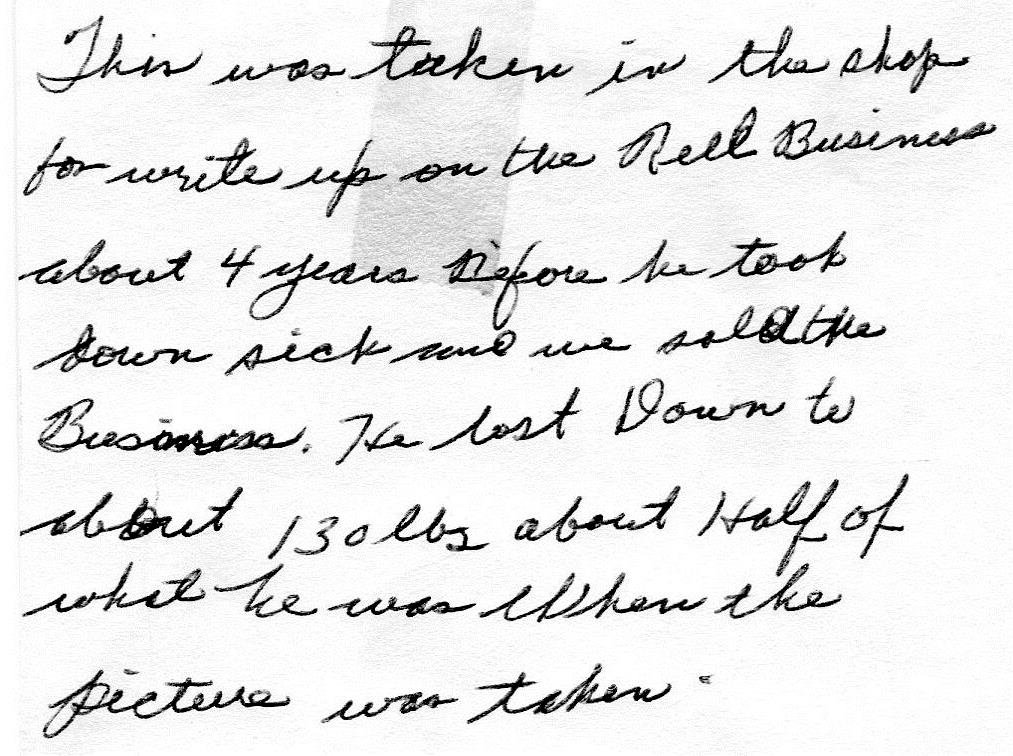 This was taken in the shop
for write up on the Reel Business
about 4 years Before he took
down sick and we sold the
Business. He lost Down to
about 130 lbs about Half of
what he was When the
picture was taken.